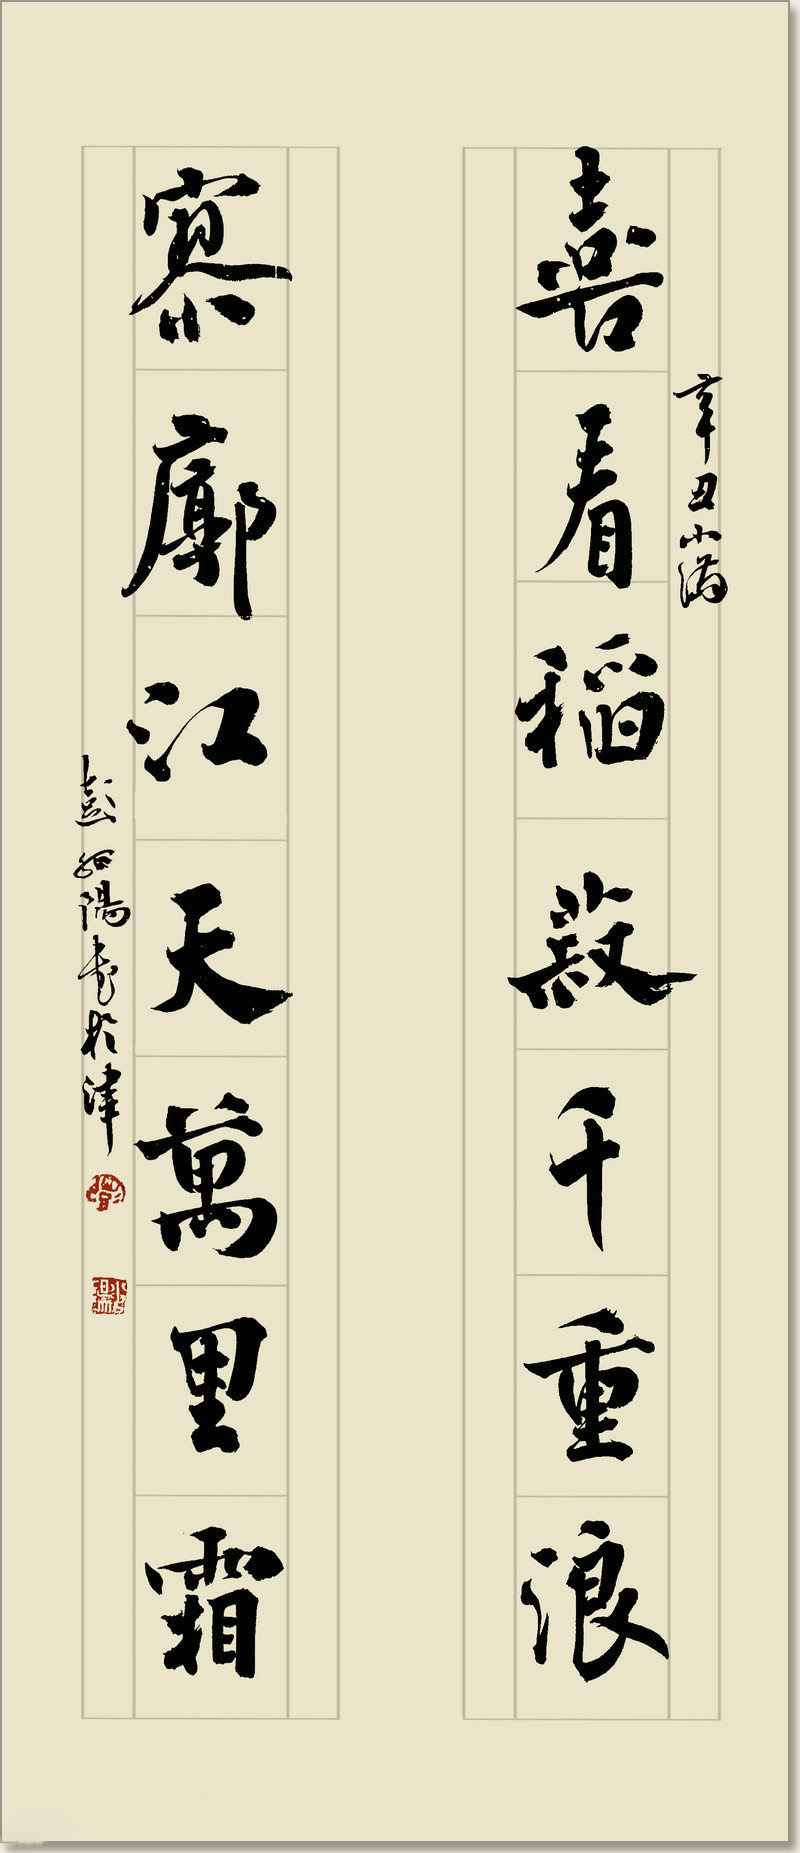 辛丑小満
喜看稻菽千重浪
寥廓江天萬里霜
彭 陽書於津